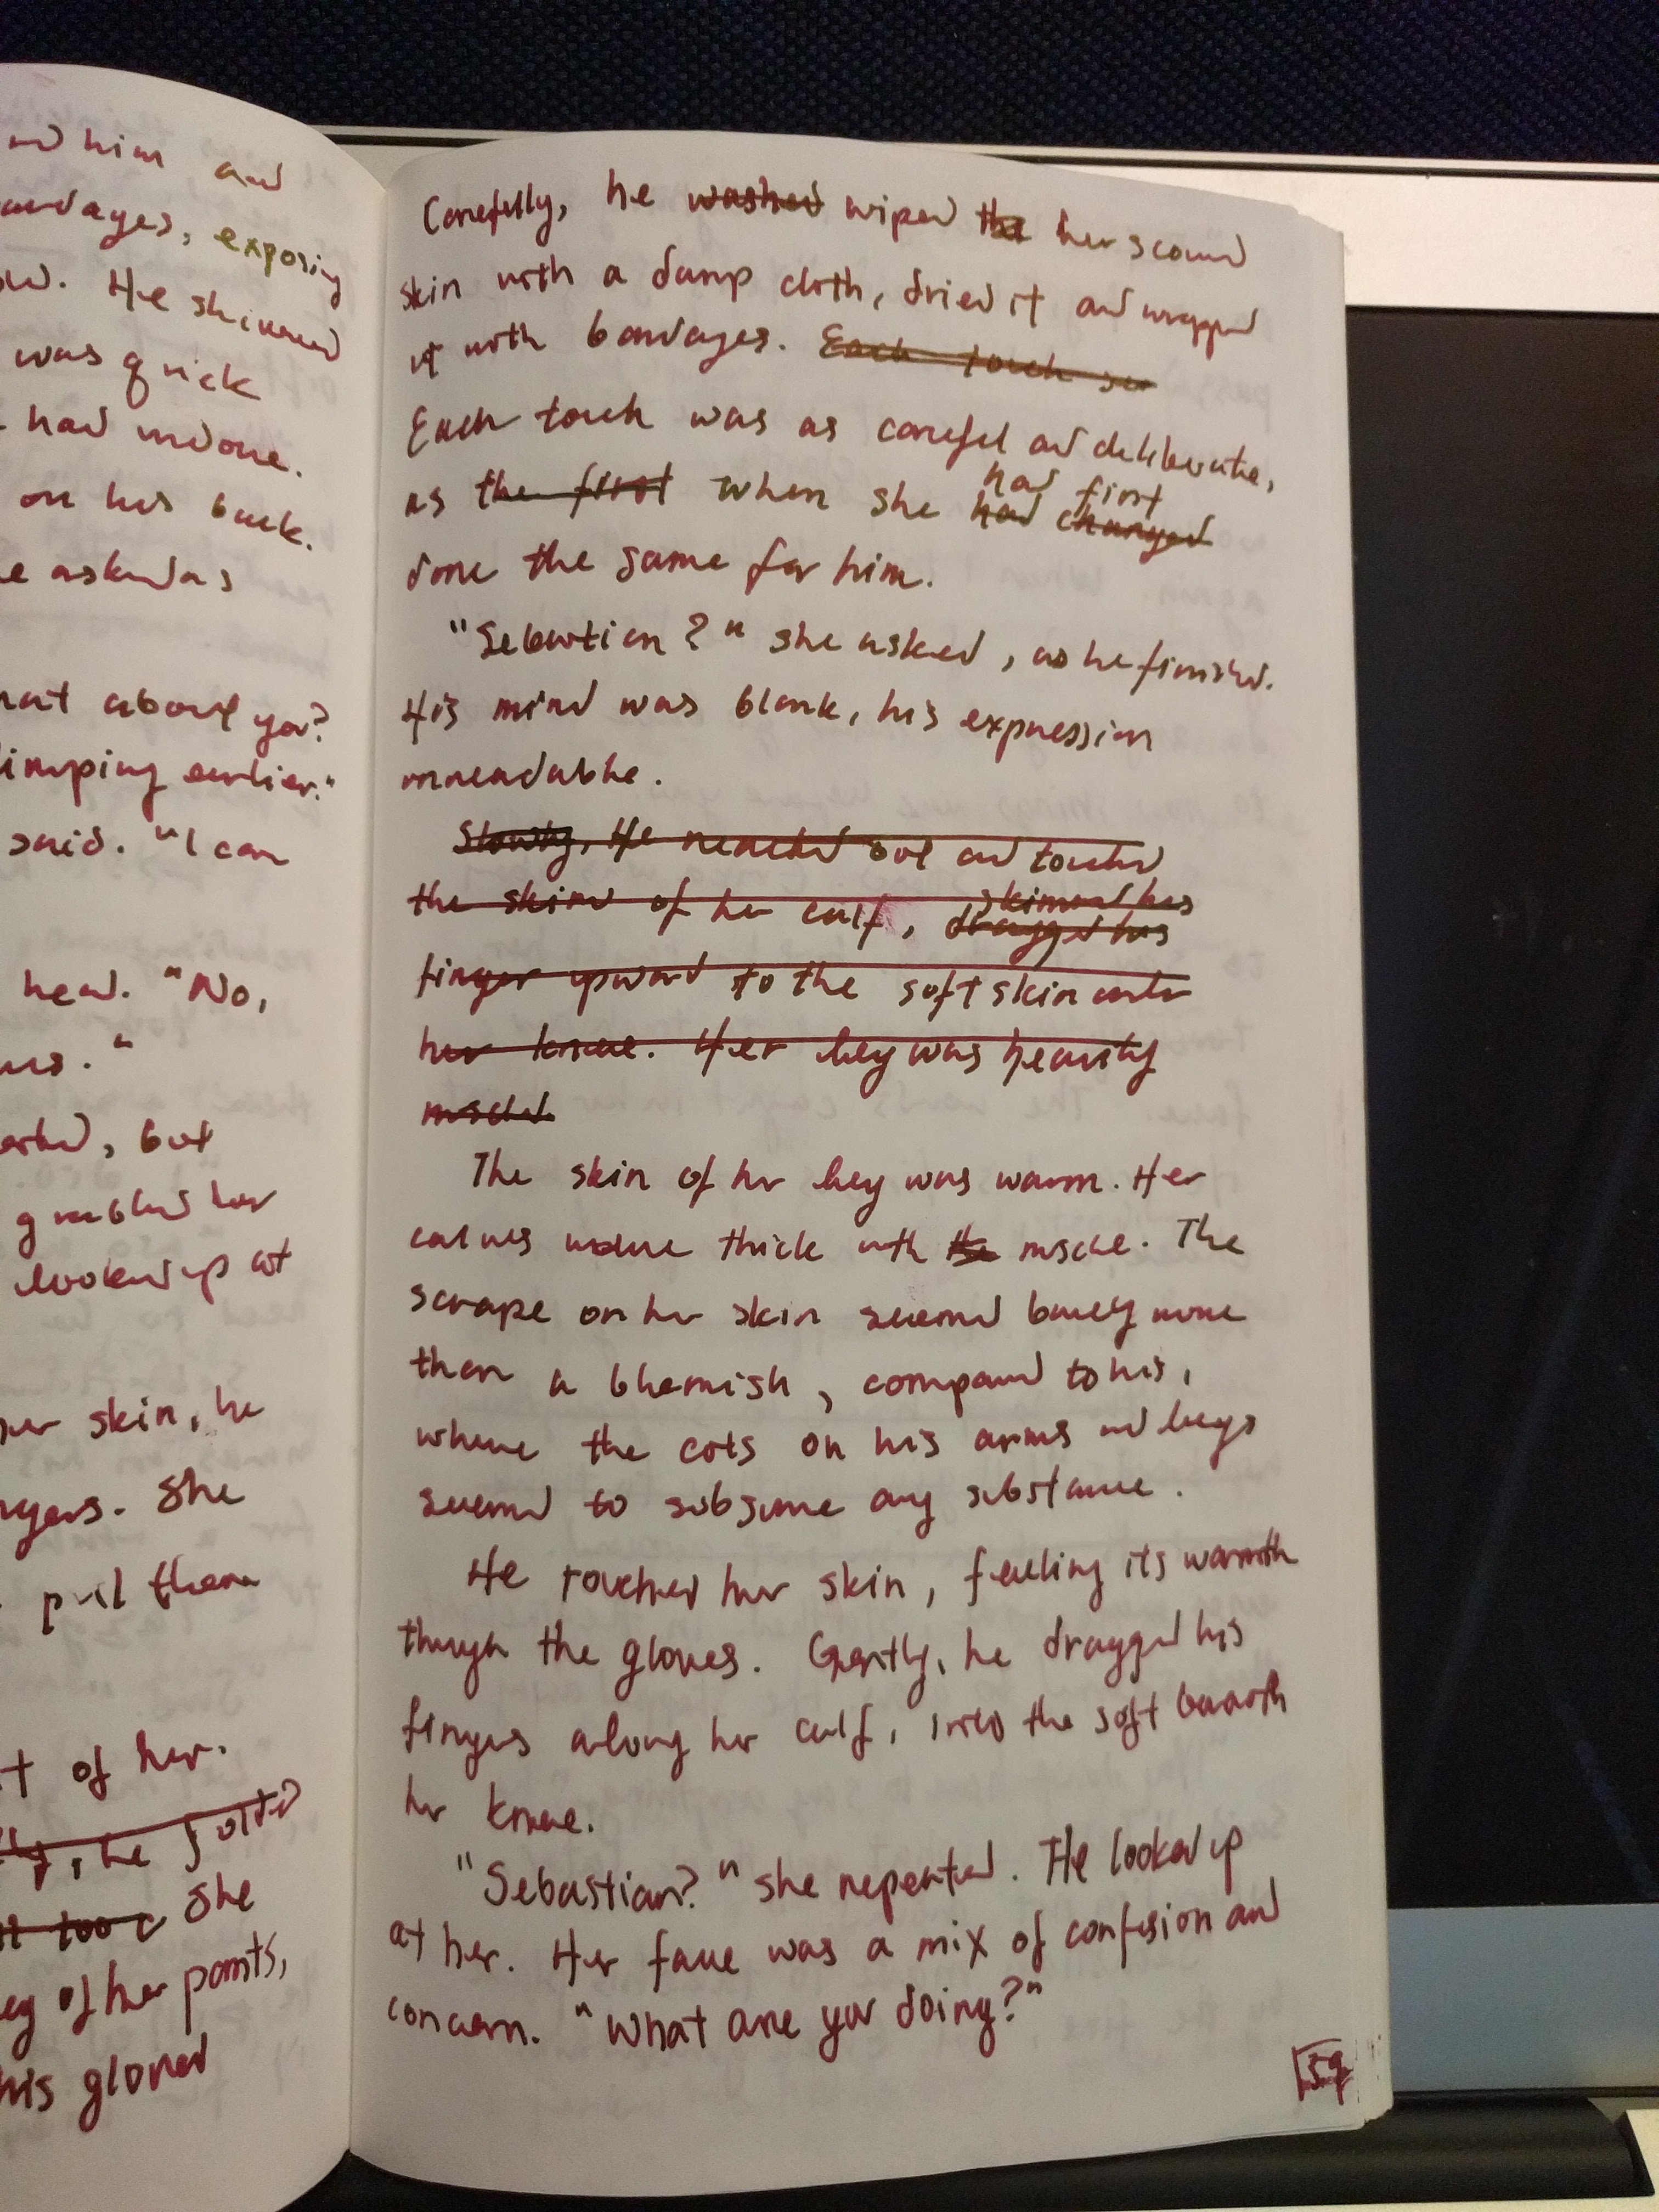 him and
bandages, exposing
. He shivered
was quick
had undone.
on his back.
he asked as
what about you?
limping earlier."
said. "I can
head. "No,
but
grabbed her
looked up at
her skin, he
She
pull them
of her.
, he
She
leg of her pants,
his gloved
Carefully, he washed wiped the her scour
skin with a damp cloth, dried it and wrapped
it with bandages. Each touch se
Each touch was as careful and deliberate,
had first
as the first when she had changed
done the same for him.
"Sebastian?" she asked, as he finished.
His mind was blank, his expression
unreadable.
Slowly, He reached out and touched
the skin of her calf, skimmed his
dragged his
finger upward to the soft skin under
her knee. Her leg was heavily
muscled
The skin of her leg was warm. Her
calves were thick with the muscle. The
scrape on her skin seemed barely more
than a blemish, compared to his,
where the cuts on his arms and legs
seemed to subsume any substance.
He touched her skin, feeling its warmth
through the gloves. Gently, he dragged his
fingers along her calf, into the soft beneath
her knee.
"Sebastian?" she repeated. He looked up
at her. Her face was a mix of confusion and
concern. "What are you doing?"
59